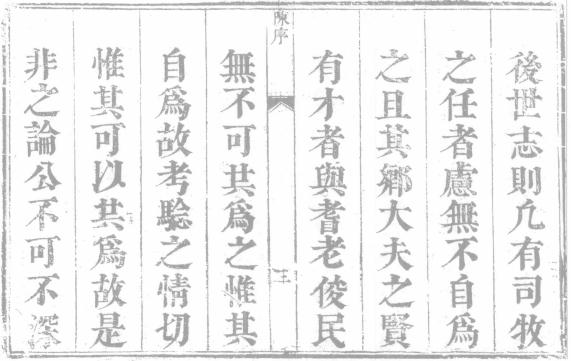 後世志則凢有司牧
之任者慮無不自爲
之且其鄉大夫之賢
有才者與耆老俊民
陳序
三
無不可共爲之惟其
自爲故考騐之情切
惟其可以共爲故是
非之論公不可不深